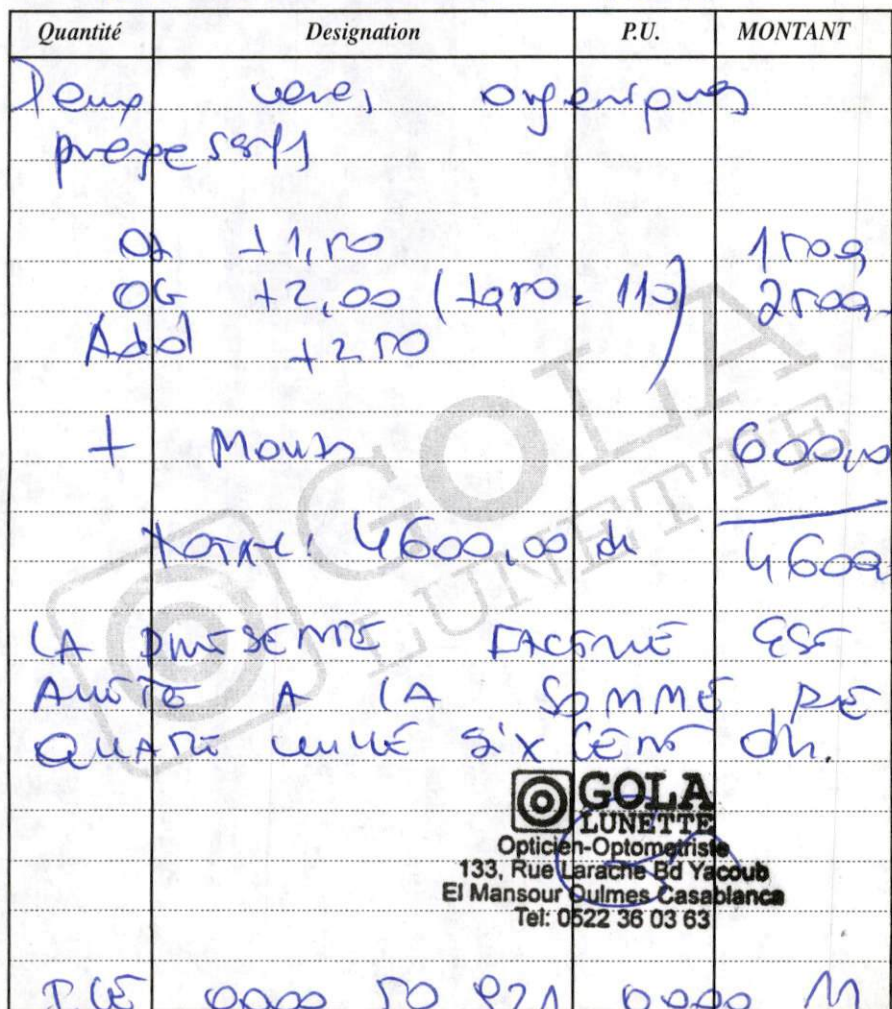 Quantité Designation P.U. MONTANT
Deux verres organiques
progressifs
OD +1,50 1500
OG +2,00 (+0,50 à 110) 2500
Add +2,50
+ Monture 600,00
TOTAL: 4600,00 dh 4600
LA PRESENTE FACTURE EST
ARRETE A LA SOMME DE
QUATRE MILLE SIX CENT Dh.
GOLA
LUNETTE
Opticien-Optometriste
133, Rue Larache Bd Yacoub
El Mansour Oulmes Casablanca
Tel: 0522 36 03 63
ICE 0000 50 921 0000 11
GOLA
LUNETTE